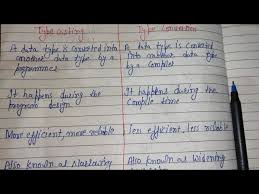 Type Casting
Type Conversion
A data type is converted into
another data type by a
programmer
A data type is Converted
into another data type
by a Compiler
It happens during the
program design
It happens during the
Compile time
More efficient, more reliable
less efficient, less reliable
Also known as Narrowing
Also Known as Widening